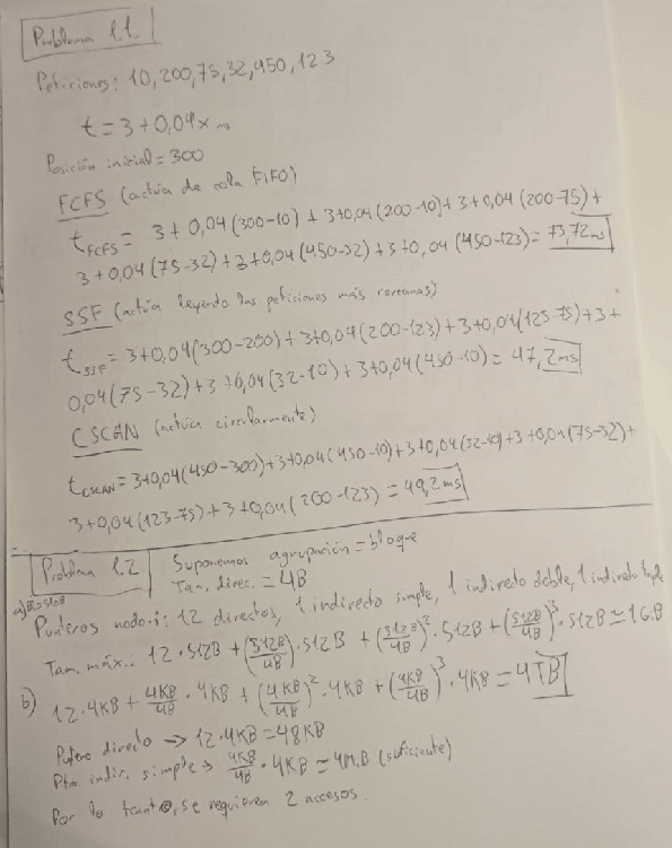 Problema 1.1.
Peticiones: 10, 200, 75, 32, 450, 123
t = 3 + 0,04x ms
Posición inicial = 300
FCFS (actúa de cola FIFO)
t_FCFS = 3 + 0,04 (300-10) + 3+0,04 (200-10) + 3+0,04 (200-75) +
3+0,04 (75-32) + 3+0,04 (450-32) + 3+0,04 (450-123) = 73,72 ms
SSF (actúa leyendo las peticiones más cercanas)
t_SSF = 3+0,04(300-200) + 3+0,04(200-123) + 3+0,04(123-75) + 3+
0,04(75-32) + 3+0,04(32-10) + 3+0,04(450-10) = 47,2 ms
CSCAN (actúa circularmente)
t_CSCAN = 3+0,04(450-300) + 3+0,04(450-10) + 3+0,04(32-10) + 3+0,04(75-32) +
3+0,04(123-75) + 3+0,04(200-123) = 49,2 ms
Problema 1.2 Suponemos agrupación = bloque
Tam. direc. = 4B
a) Bl=512B
Punteros nodo-i: 12 directos, 1 indirecto simple, 1 indirecto doble, 1 indirecto triple
Tam. máx.: 12·512B + (512B/4B)·512B + (512B/4B)²·512B + (512B/4B)³·512B ≃ 1GB
b) 12·4KB + 4KB/4B · 4KB + (4KB/4B)²·4KB + (4KB/4B)³·4KB = 4TB
Putero directo → 12·4KB = 48KB
Ptro indir. simple → 4KB/4B · 4KB ≃ 4MB (suficiente)
Por lo tanto, se requieren 2 accesos.